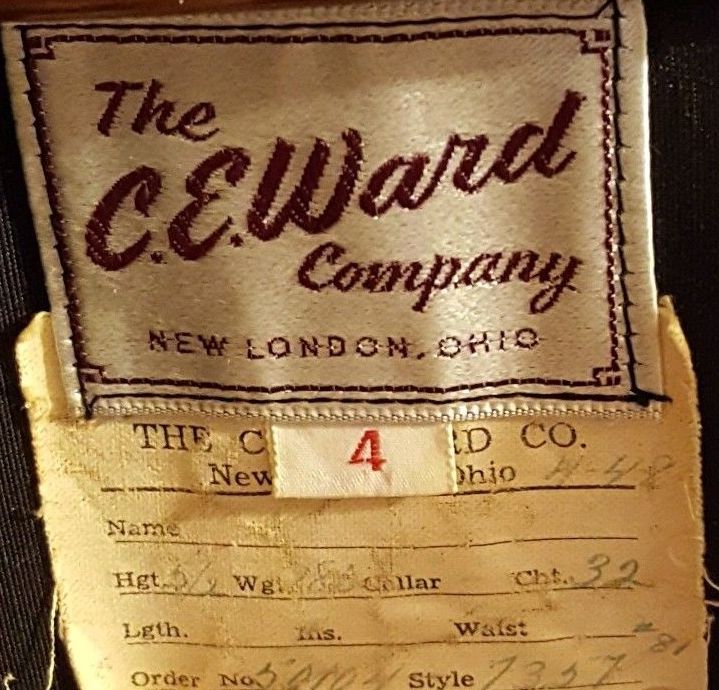 The
C.E.Ward
Company
NEW LONDON, OHIO
4
THE C RD CO.
New Ohio
Name
Hgt. Wgt. Collar Cht. 32
Lgth. Ins. Waist
Order No Style 7357